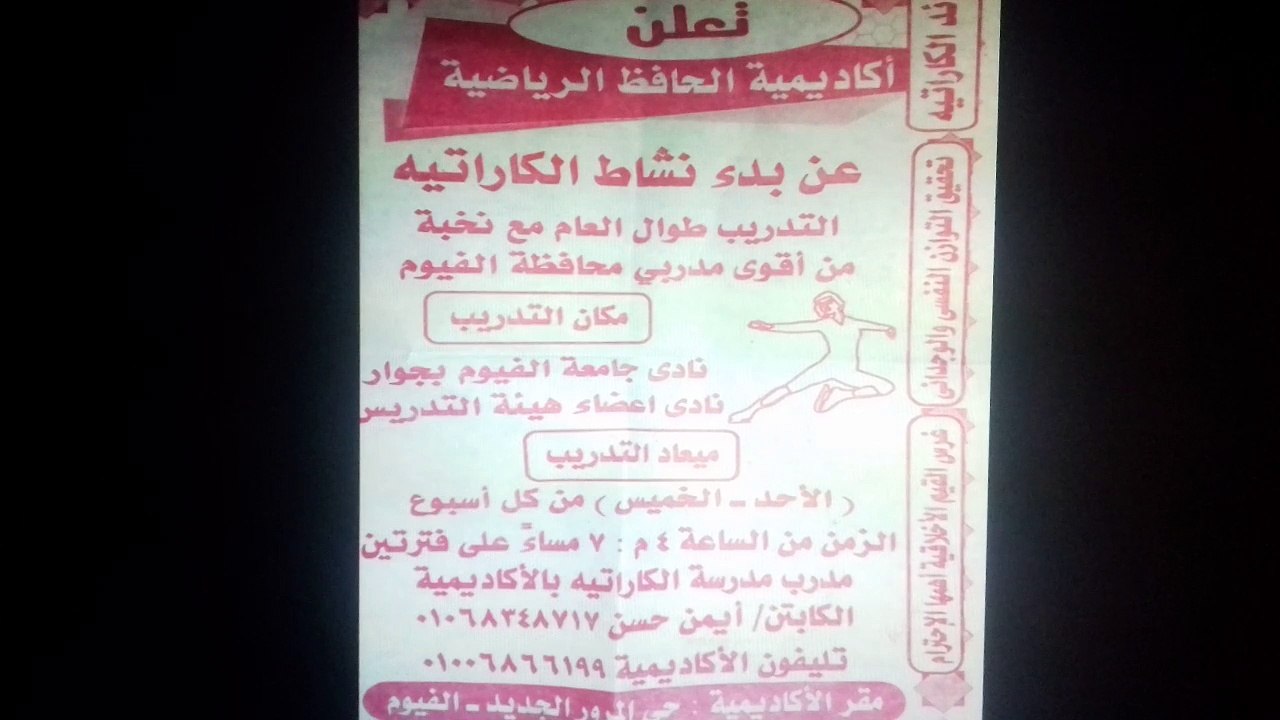 تعلن
أكاديمية الحافظ الرياضية
عن بدء نشاط الكاراتيه
التدريب طوال العام مع نخبة
من أقوى مدربي محافظة الفيوم
مكان التدريب
نادى جامعة الفيوم بجوار
نادى اعضاء هيئة التدريس
ميعاد التدريب
( الأحد - الخميس ) من كل أسبوع
الزمن من الساعة ٤ م : ٧ مساءً على فترتين
مدرب مدرسة الكاراتيه بالأكاديمية
الكابتن/ أيمن حسن ٠١٠٦٨٣٤٨٧١٧
تليفون الأكاديمية ٠١٠٠٦٨٦٦١٩٩
مقر الأكاديمية : حى المرور الجديد - الفيوم
الكاراتيه
تحقيق التوازن النفسى والوجدانى
غرس القيم الأخلاقية أهمها الإحترام